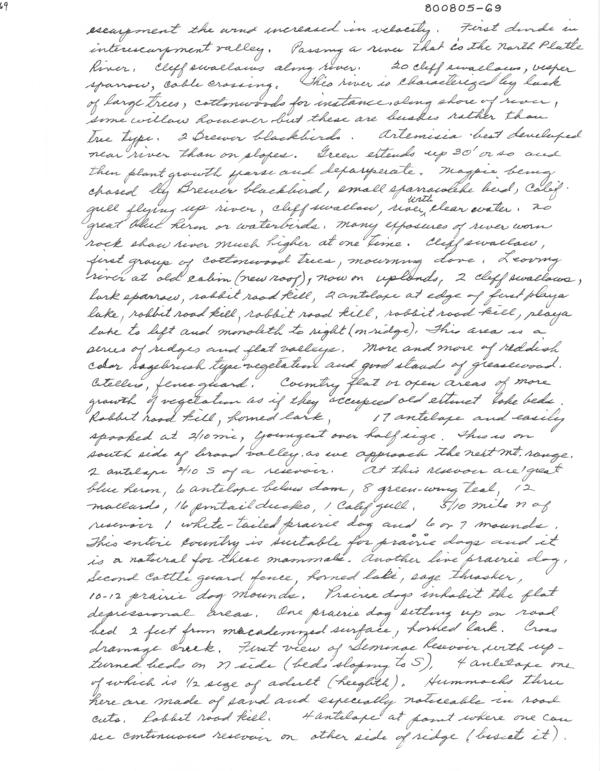 69
800805-69
escarpment the wind increased in velocity. First divide in
interescarpment valley. Passing a river that is the North Platte
River. Cliff swallows along river. 20 cliff swallows, vesper
sparrow, cable crossing. This river is characterized by lack
of large trees, cottonwoods for instance along shore of river,
some willow however but these are bushes rather than
tree type. 2 Brewer blackbirds. Artemisia best developed
near river than on slopes. Green extends up 20' or so and
then plant growth sparse and depauperate. Magpie being
chased by Brewer blackbird, small sparrowlike bird, Calif.
gull flying up river, cliff swallow, river with clear water. no
great blue heron or waterbirds. Many exposures of river worn
rock show river much higher at one time. Cliff swallow,
first group of cottonwood trees, mourning dove. Leaving
river at old cabin (new roof), now on uplands, 2 cliff swallows,
lark sparrow, rabbit road kill, 2 antelope at edge of first playa
lake, rabbit road kill, rabbit road kill, rabbit road kill, playa
lake to left and monolith to right (on ridge). This area is a
series of ridges and flat valleys. More and more of reddish
color sagebrush type vegetation and good stands of greasewood.
Citellus, fence guard. Country flat or open areas of more
growth of vegetation as if they occupied old extinct lake beds.
Rabbit road kill, horned lark, 17 antelope and easily
spooked at 2/10 mi, youngest over half size. This is on
south side of broad valley as we approach the next mt. range.
2 antelope 2/10 S of a resevoir. At this resevoir are 1 great
blue heron, 6 antelope below dam, 8 green-wing teal, 12
mallards, 16 pintail ducks, 1 Calif gull. 5/10 mile N of
resevoir 1 white-tailed prairie dog and 6 or 7 mounds.
This entire country is suitable for prairie dogs and it
is a natural for these mammals. Another live prairie dog,
second cattle guard fence, horned lark, sage thrasher,
10-12 prairie dog mounds. Prairie dogs inhabit the flat
depressional areas. One prairie dog setting up on road
bed 2 feet from macademized surface, horned lark. Cross
drainage creek. First view of Seminoe Resevoir with up-
turned beds on N side (beds sloping to S), 4 antelope one
of which is 1/2 size of adult (heighth). Hummocks thru
here are made of sand and especially noticeable in road
cuts. Rabbit road kill. 4 antelope at point where one can
see continuous resevoir on other side of ridge (bisect it).